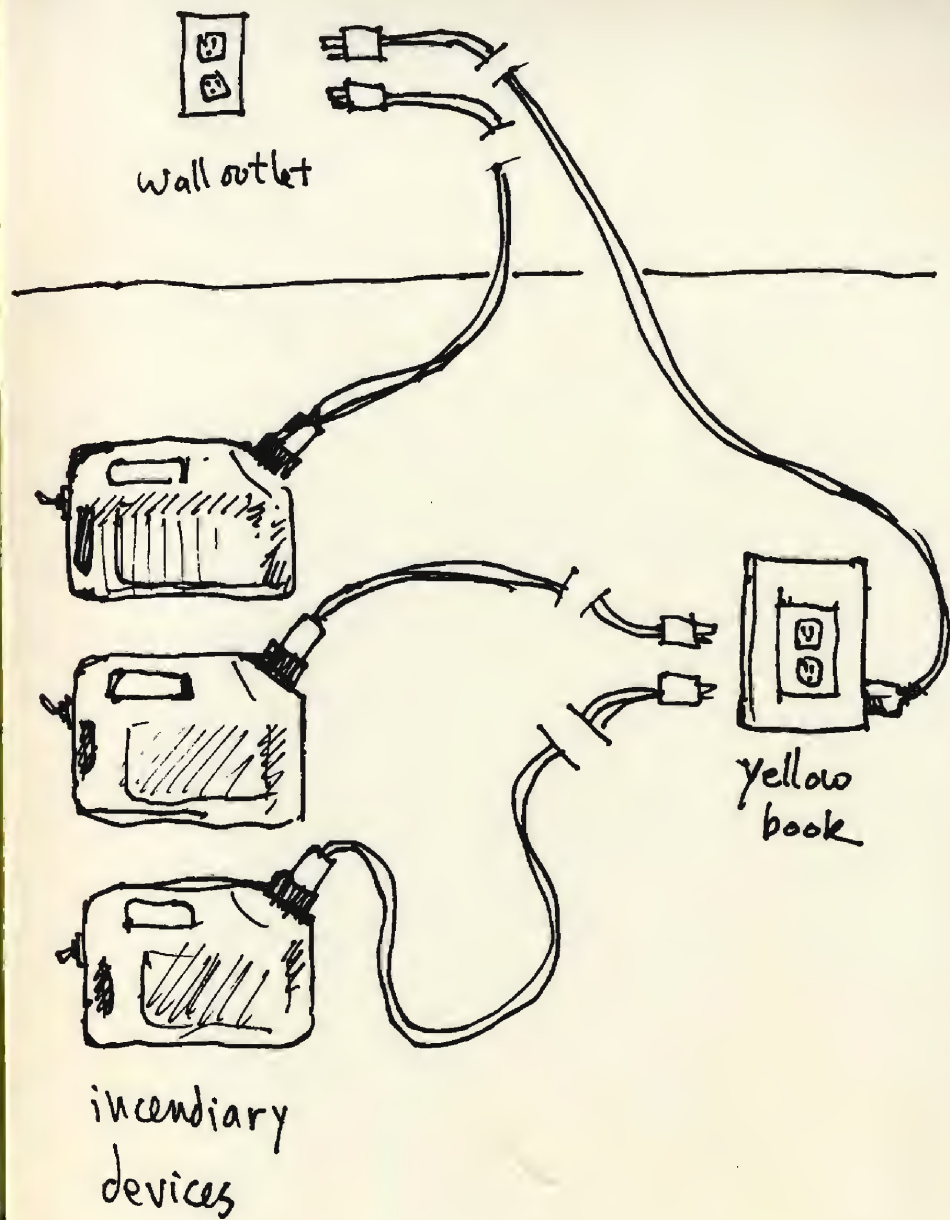 wall outlet
yellow
book
incendiary
devices